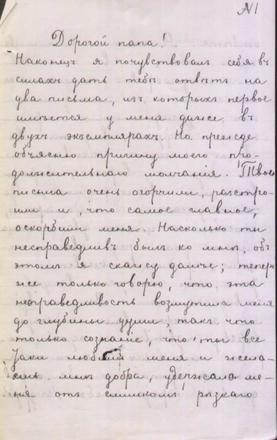 №1
Дорогой папа!
Наконецъ я почувствовалъ себя въ
силахъ дать тебѣ отвѣтъ на
два письма, изъ которыхъ первое
имѣется у меня даже въ
двухъ экземплярахъ. Но прежде
объясню причину моего про-
должительнаго молчанія. Твои
письма очень огорчили, разстро-
или и, что самое главное,
оскорбили меня. Насколько ты
несправедливъ былъ ко мнѣ, объ
этомъ я скажу далѣе; тепер
же только говорю, что эта
несправедливость возмутила меня
до глубины души, такъ что
только сознаніе, что ты все
таки любилъ меня и жела-
лъ мнѣ добра, удержало ме-
ня отъ слишкомъ рѣзкаго